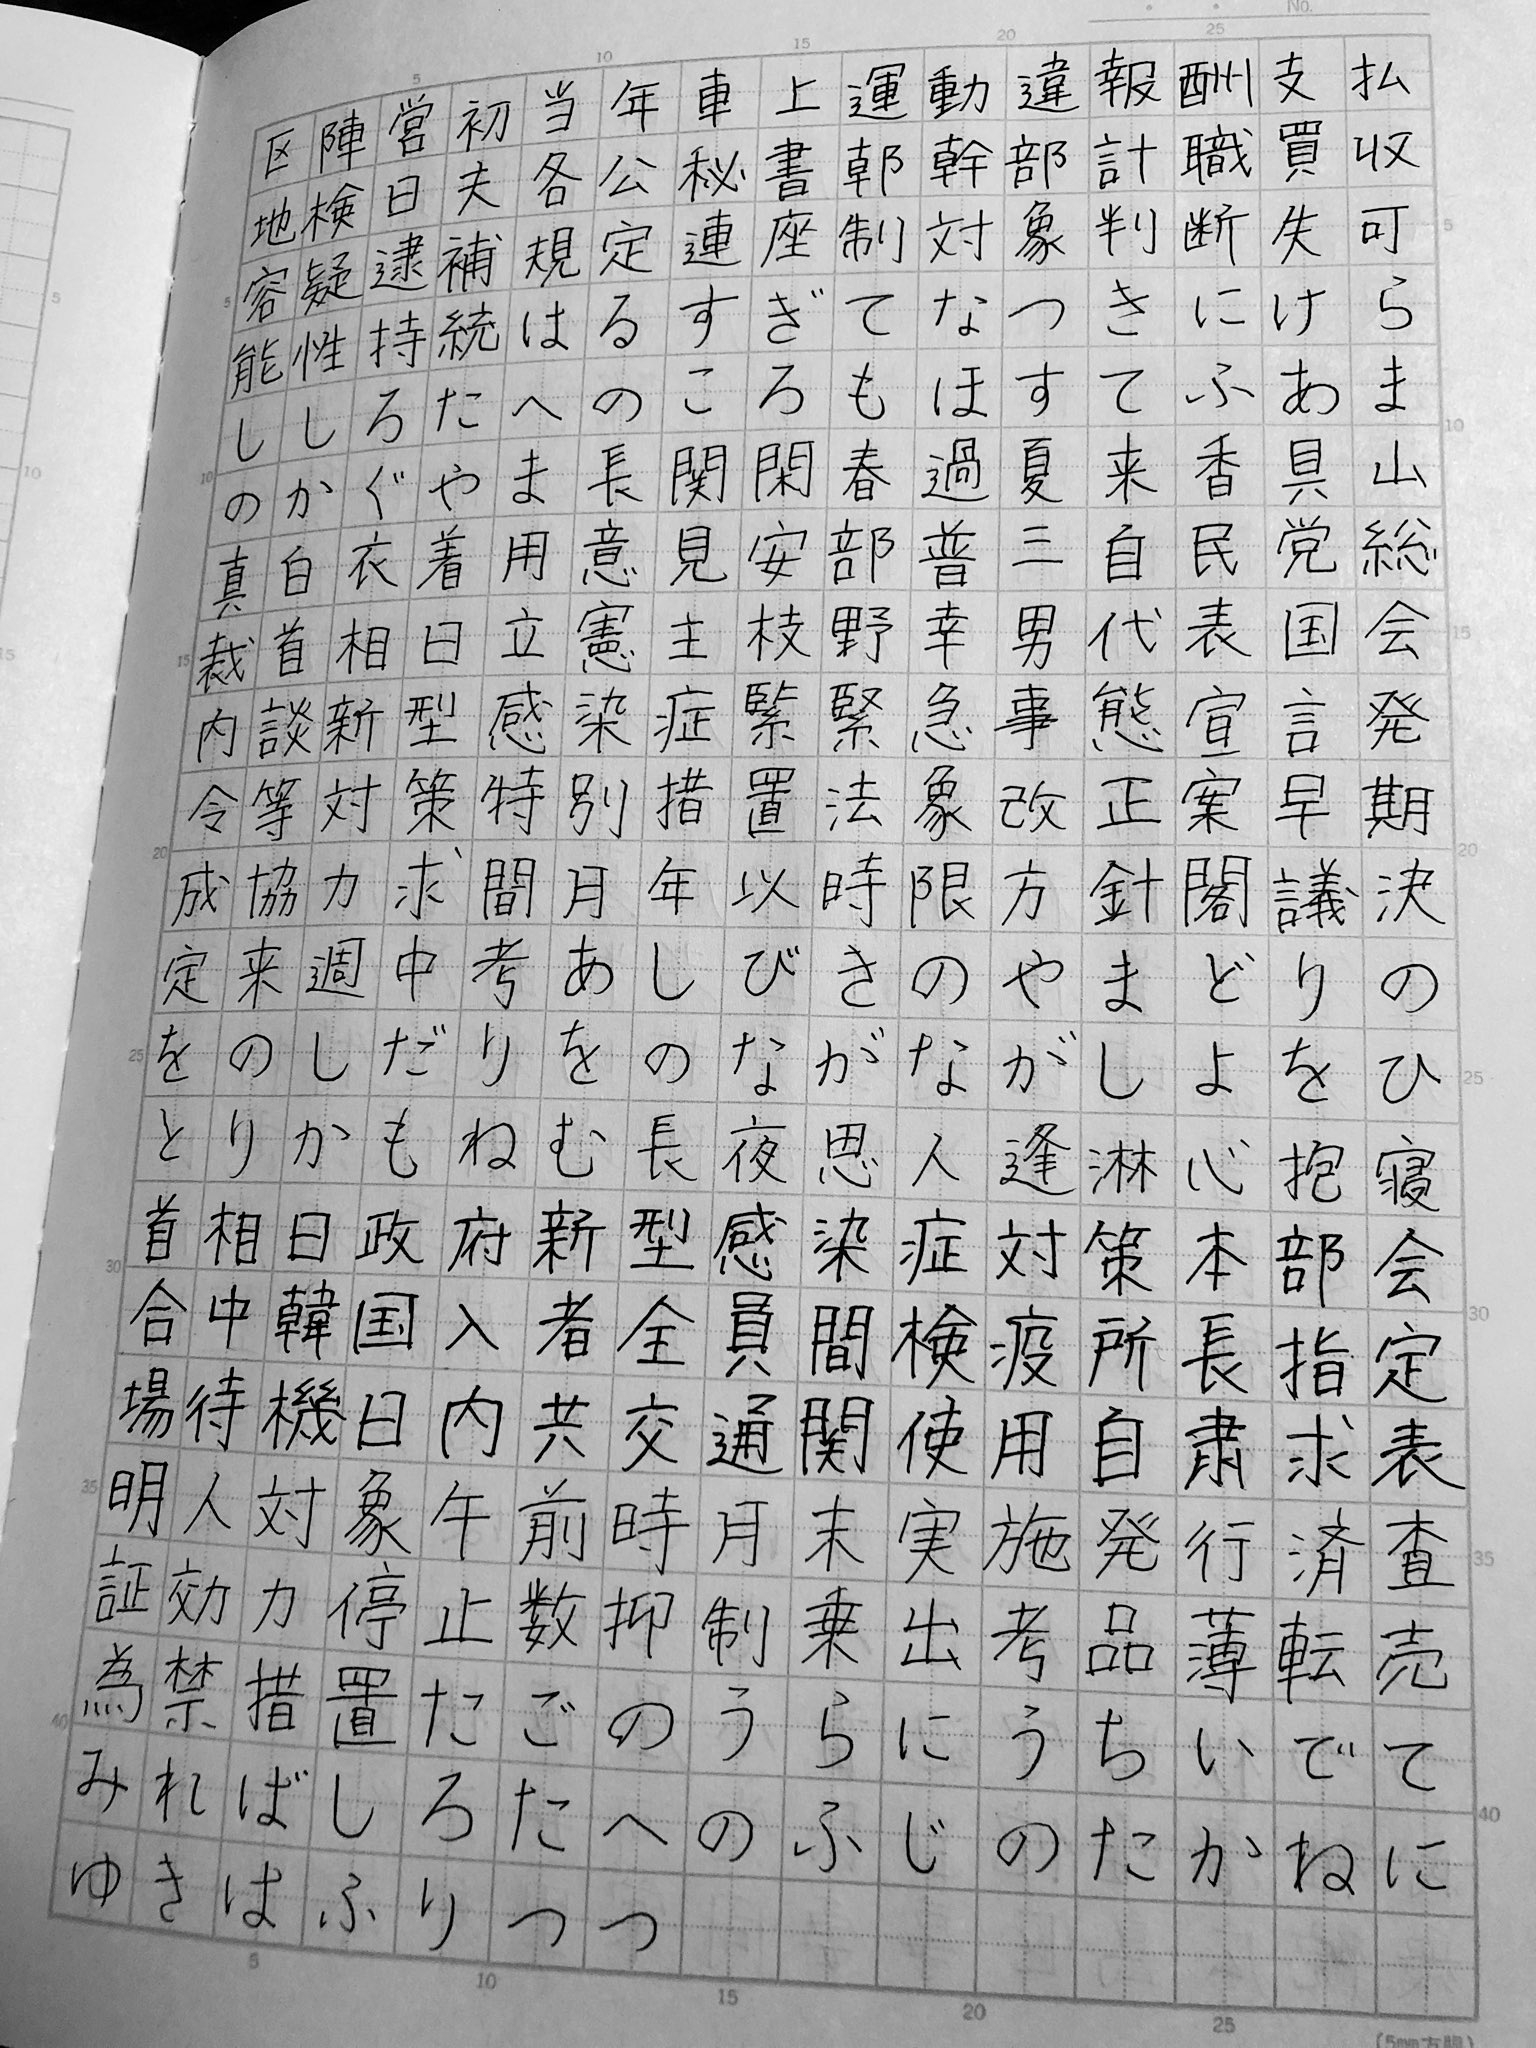 No.
区陣営初当年車上運動違報酬支払
地検日夫各公秘書部幹部計職買収
容疑逮補規定連座制対象判断失可
能性持続はるすぎてなつきにけら
ししろたへのころもほすてふあま
のかぐやま長関閑春過夏来香具山
真白衣着用意見安部普三自民党総
裁首相日立憲主枝野幸男代表国会
内談新型感染症緊緊急事態宣言発
令等対策特別措置法象改正案早期
成協力求間月年以時限方針閣議決
定来週中考あしびきのやまどりの
をのしだりをのながながしよをひ
とりかもねむ長夜思人逢淋心抱寝
首相日政府新型感染症対策本部会
合中韓国入者全員間検疫所長指定
場待機日内共交通関使用自粛求表
明人対象午前時月末実施発行済査
証効力停止数抑制乗出考品薄転売
為禁措置たごのうらにうちいでて
みればしろたへのふじのたかねに
ゆきはふりつつ